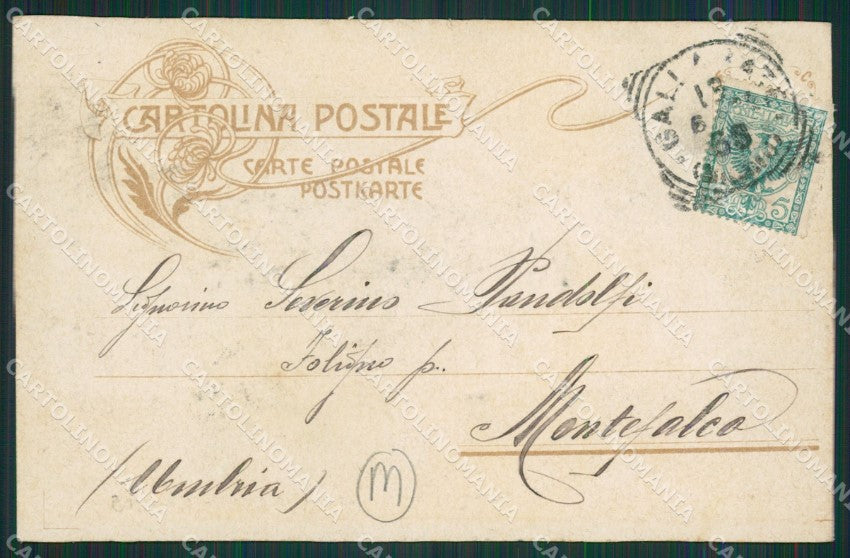 CARTOLINA POSTALE
CARTE POSTALE
POSTKARTE
5
Signorino Severino Pandolfi
Foligno p.
Montefalco
(Umbria)
M
CARTOLINOMANIA